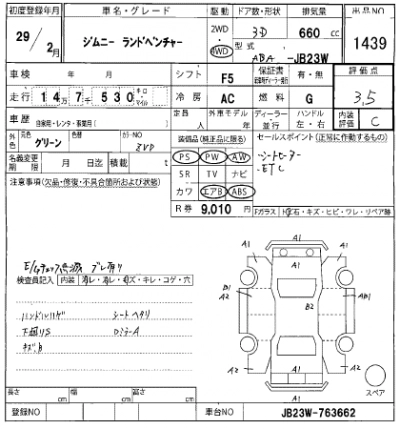 初度登録年月 車名・グレード 駆動 ドア数・形状 排気量 出品NO
29/2月 ジムニー ランドベンチャー 2WD・4WD 3D 660cc 1439
型式 ABA-JB23W
車検 年 月 シフト F5 保証書 有・無 評価点
走行 14万7千530 キロ・マイル 冷房 AC 燃料 G 3.5
車歴 自家用・レンタ・事業用( ) 定員 人 外車モデル 年 ディーラー 並行 ハンドル 左・右 内装評価 C
外色 元色 グリーン 色替 カラーNO ZVD 装備品(純正品に限る) セールスポイント(正常に作動するもの)
名義変更期限 月 日迄 積載 t PS PW AW ・シートヒーター
注意事項(欠品・修復・不具合箇所および状態) SR TV ナビ ・ETC
カワ エアB ABS
R券 9,010円
Fガラス
A1 A1
A1
E/gチェック点滅 ブレ有り
検査員記入 内装
B1 A2 B2 AB1 A2
ハンドルハゲ シートヘタリ
下廻りS
キズB
A2 A1 A2
スペア
長さ cm 幅 cm 高さ cm
登録NO 車台NO JB23W-763662